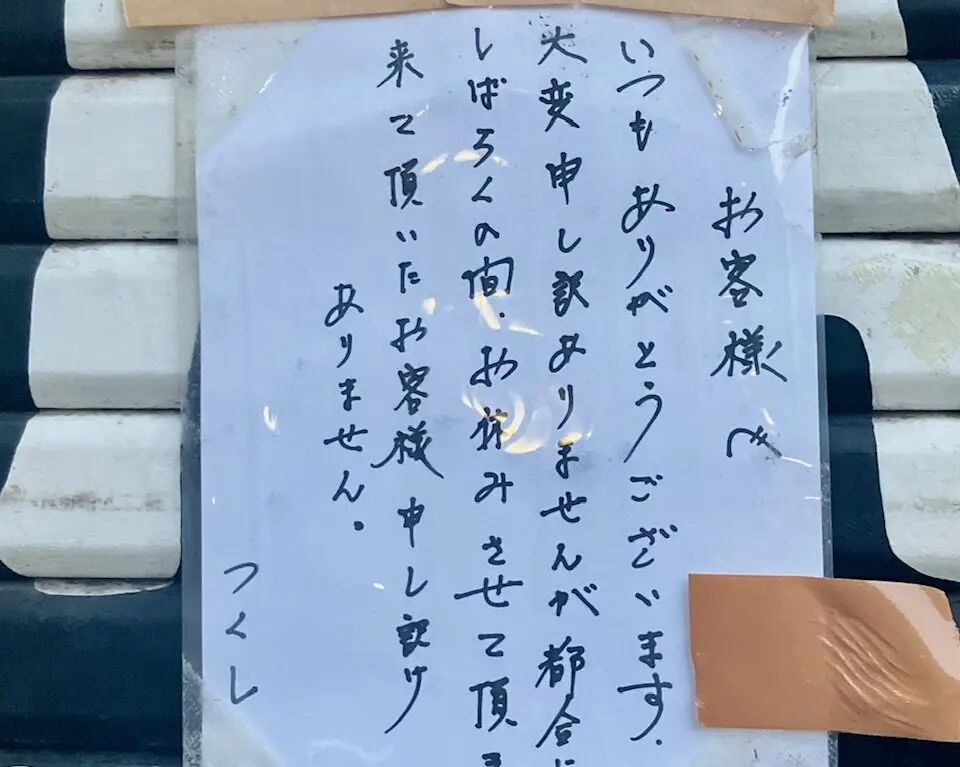 お客様へ
いつもありがとうございます.
大変申し訳ありませんが都合に
しばらくの間.お休みさせて頂き
来て頂いたお客様 申し訳け
ありません.
つくし